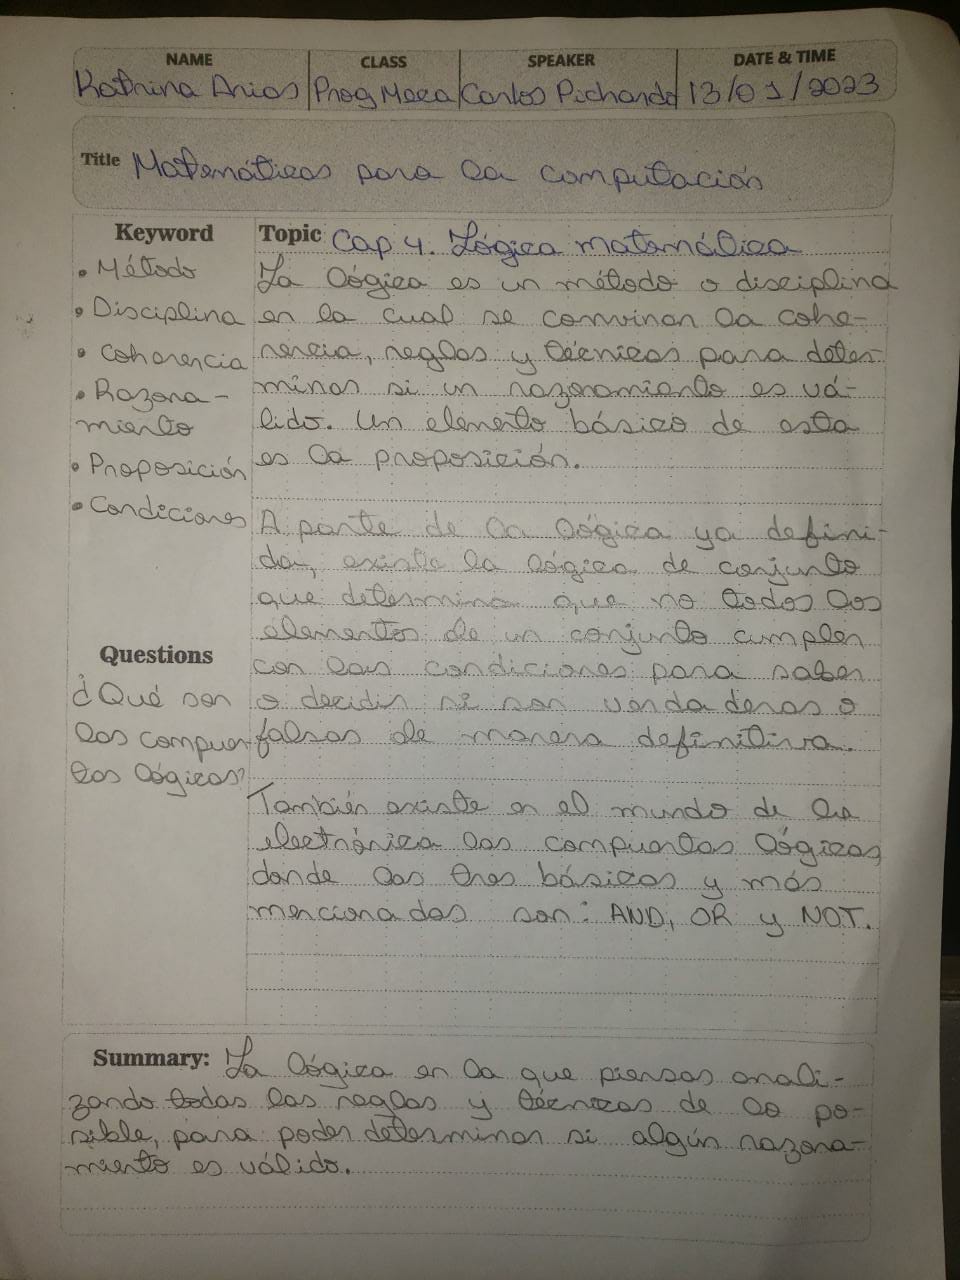 NAME CLASS SPEAKER DATE & TIME
Katrina Arias Prog Meca Carlos Pichardo 13/01/2023
Title Matemáticas para la computación
Keyword
• Método
• Disciplina
• Coherencia
• Razona-
miento
• Proposición
• Condiciones
Topic Cap 4. Lógica matemática
La lógica es un método o disciplina
en la cual se convinan la cohe-
rencia, reglas y técnicas para deter-
minar si un razonamiento es vá-
lido. Un elemento básico de esta
es la proposición.
A parte de la lógica ya defini-
da, existe la lógica de conjunto
que determina que no todos los
elementos de un conjunto cumplen
con las condiciones para saber
o decidir si son verdaderas o
falsas de manera definitiva.
También existe en el mundo de la
electrónica las compuertas lógicas,
donde las tres básicas y más
mencionadas son: AND, OR y NOT.
Questions
¿Qué son
las compuer
tas lógicas?
Summary: La lógica en la que piensas anali-
zando todas las reglas y técnicas de lo po-
sible, para poder determinar si algún razona-
miento es válido.